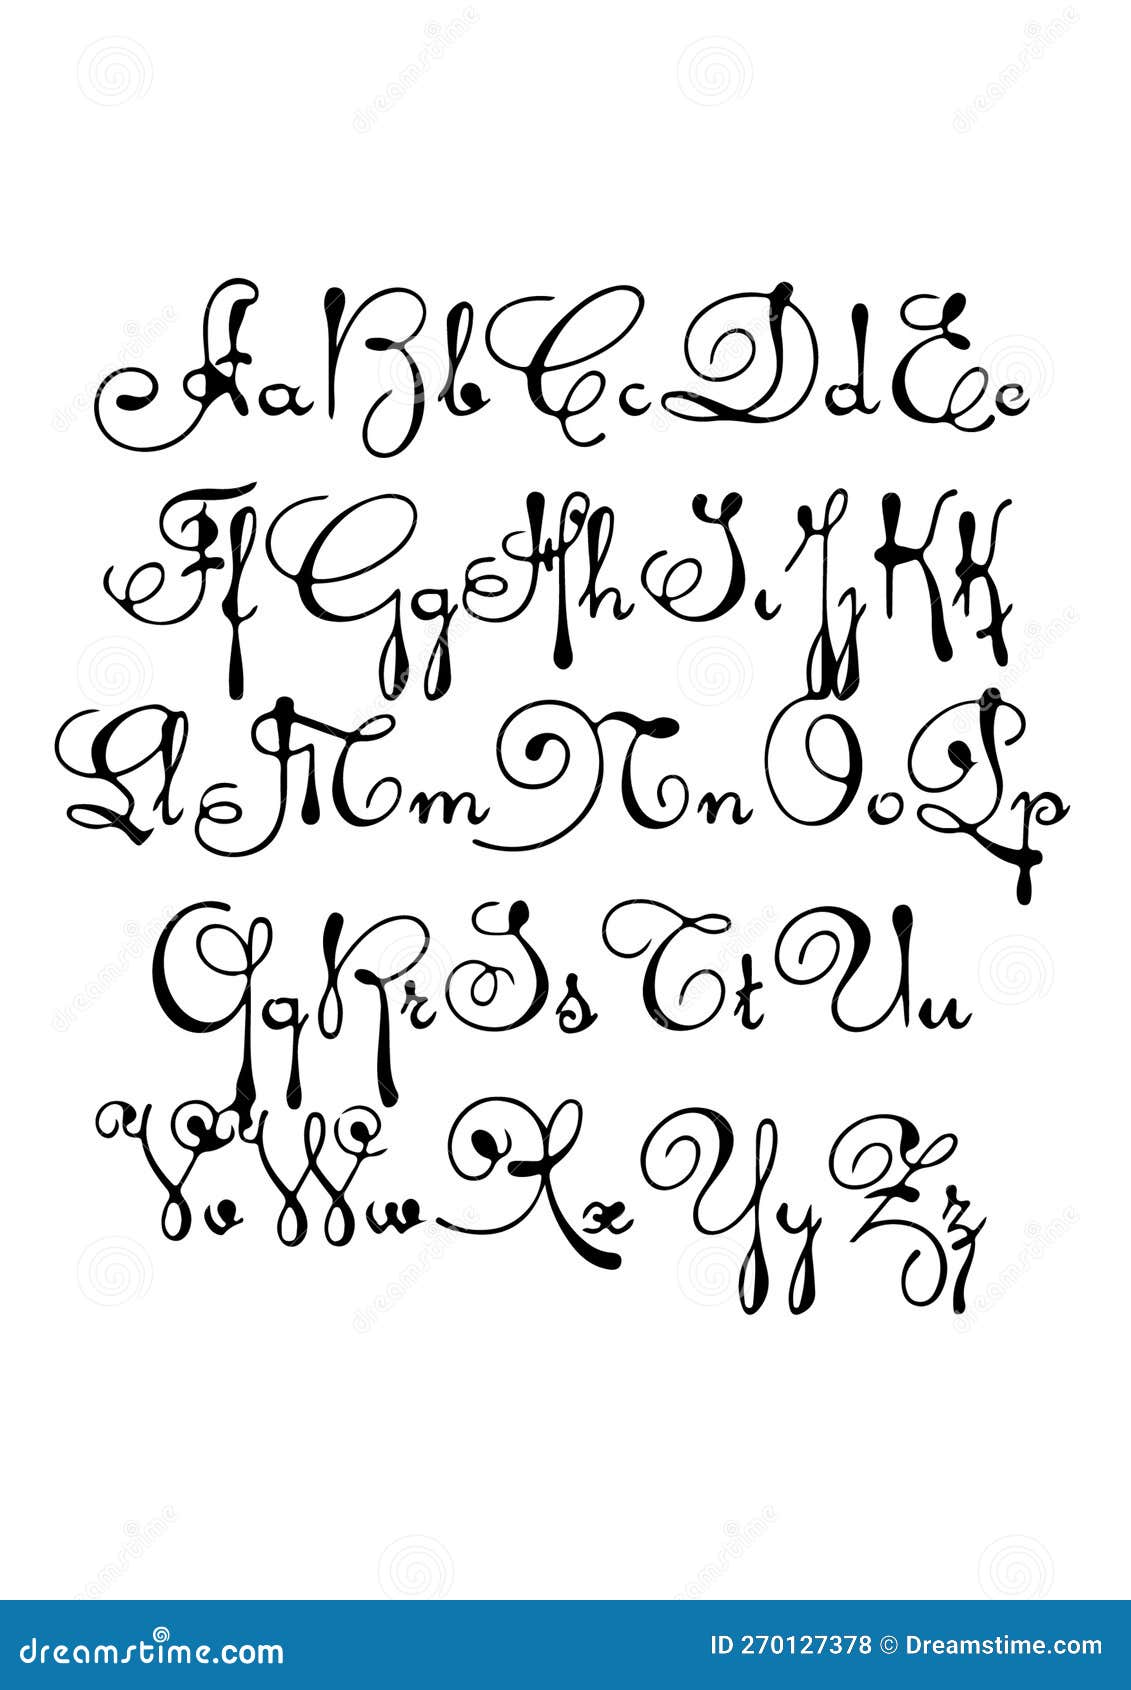 Aa Bb Cc Dd Ee
Ff Gg Hh Ii Jj Kk
Ll Mm Nn Oo Pp
Qq Rr Ss Tt Uu
Vv Ww Xx Yy Zz
dreamstime.com
ID 270127378 © Dreamstime.com